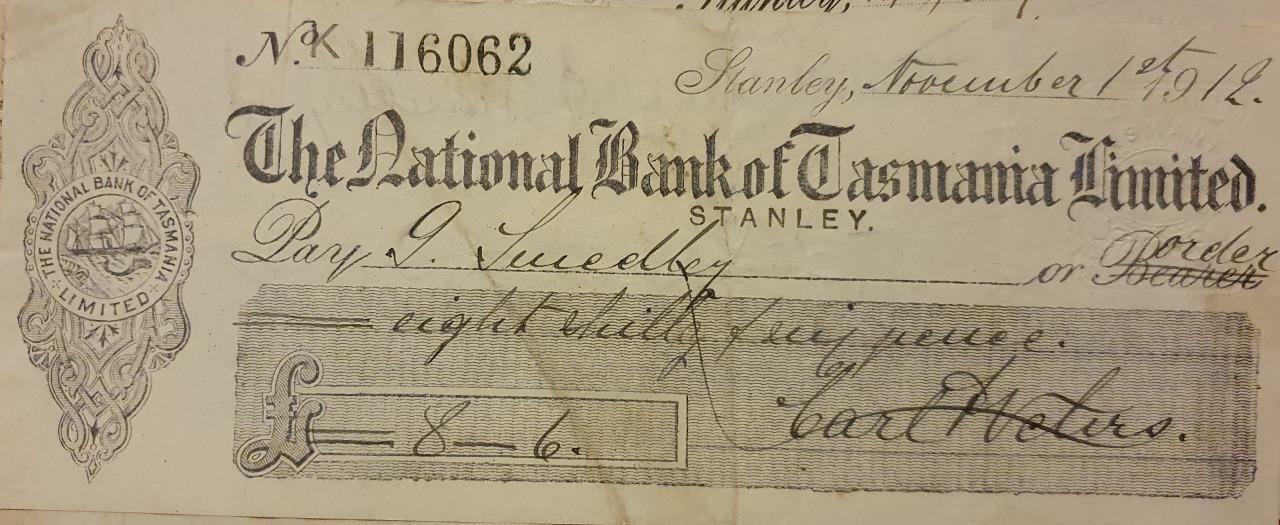 No. K 116062
Stanley, November 1st 1912.
The National Bank of Tasmania Limited.
STANLEY.
Pay G. Smedley or Bearer order
eight shillgs & six pence.
£ 8 - 6.
Carl
THE NATIONAL BANK OF TASMANIA LIMITED